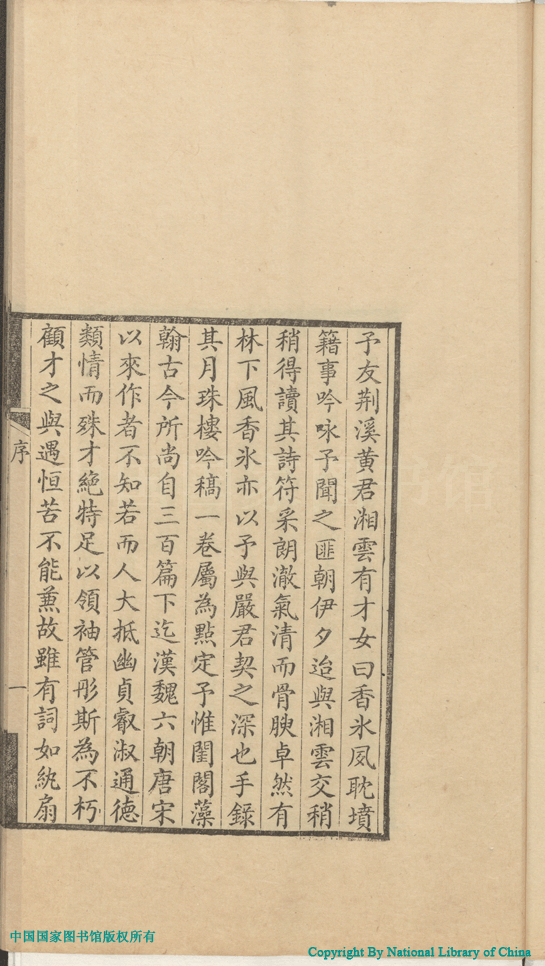 予友荆溪黄君湘雲有才女曰香氷夙耽墳
籍事吟咏予聞之匪朝伊夕迨與湘雲交稍
稍得讀其詩符采朗澈氣清而骨腴卓然有
林下風香氷亦以予與嚴君契之深也手錄
其月珠樓吟稿一卷屬為點定予惟閨閣藻
翰古今所尚自三百篇下迄漢魏六朝唐宋
以來作者不知若而人大抵幽貞叡淑通德
類情而殊才絶特足以領袖管彤斯為不朽
顧才之與遇恒苦不能兼故雖有詞如紈扇
序
一
中国国家图书馆版权所有
Copyright By National Library of China